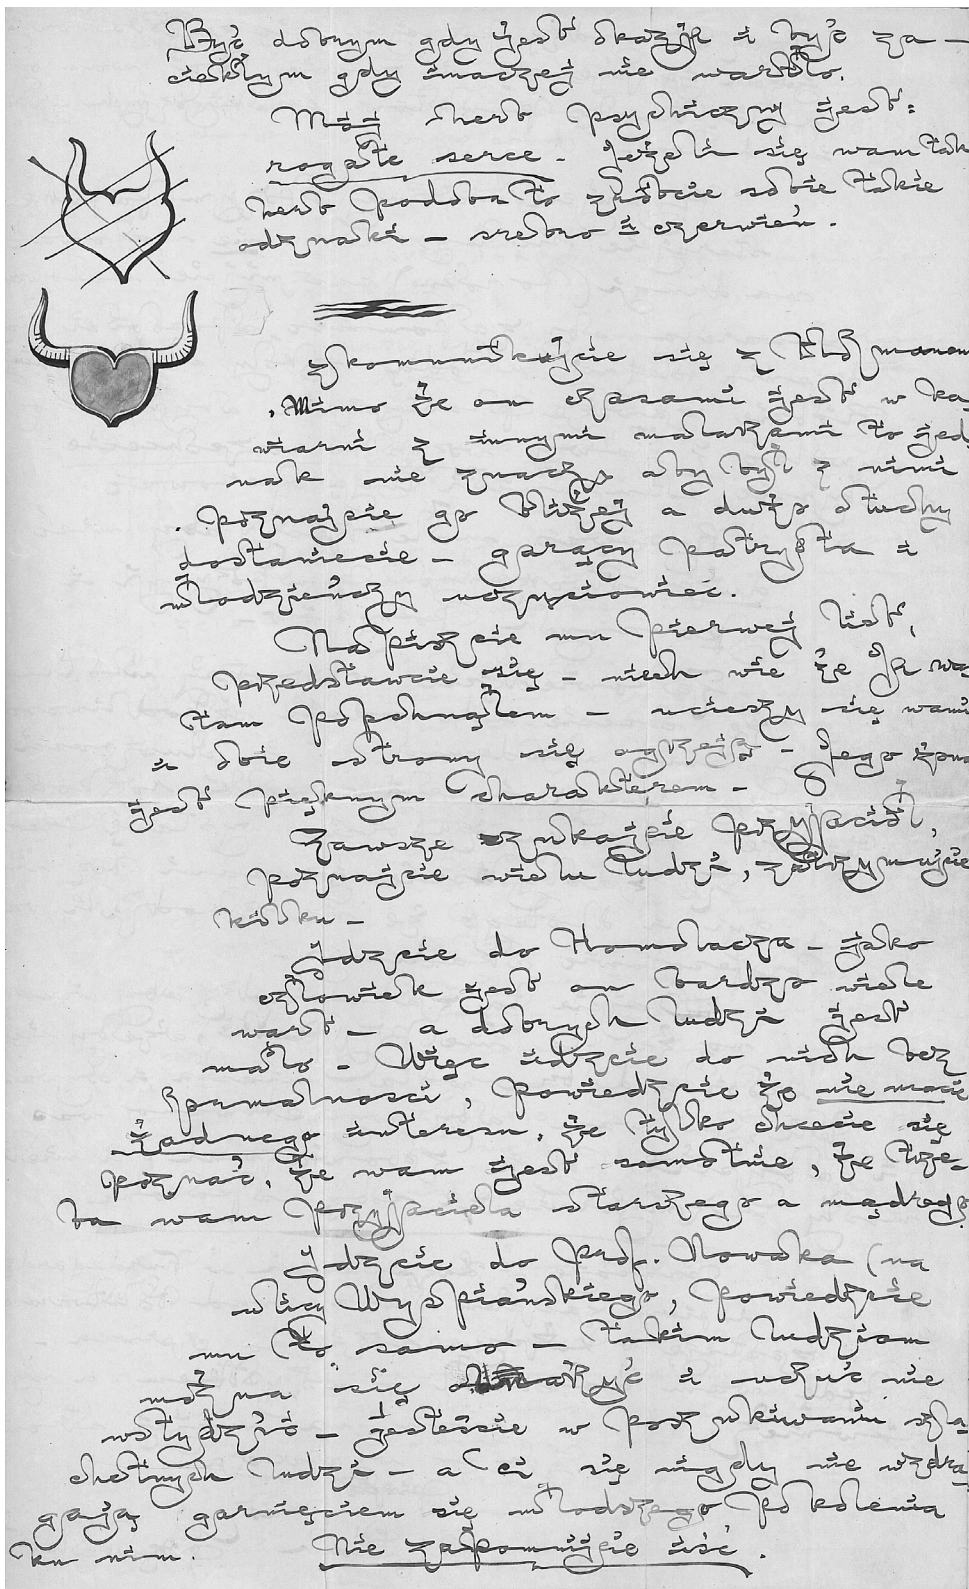 Być dobrym gdy jest okazja i być za-
ciekłym gdy inaczej nie warto.
Mój herb psychiczny jest:
rogate serce. Jeżeli się wam tak
herb podoba to zróbcie sobie takie
odznaki – srebro i czerwień.
Skomunikujcie się z
Mimo że on czasami jest w ka-
wiarni z innymi malarzami to jed-
nak nie znaczy aby był z nimi
. Poznajcie go bliżej a dużo otuchy
dostaniecie – gorący patryota i
młodzieńczy uczuciowiec.
Napiszcie mu pierwej list,
przedstawcie się – niech wie że ja was
tam popchnąłem – ucieszy się wami
i obie strony się ogrzeją – Jego żona
jest pięknym charakterem –
Zawsze szukajcie przyjaciół,
poznajcie wielu ludzi, zatrzymujcie
kilku –
Idzcie do Homolacza – jako
człowiek jest on bardzo wiele
wart – a dobrych ludzi jest
mało – Więc idzcie do nich bez
formalności, powiedzcie że nie macie
żadnego interesu, że tylko chcecie się
poznać, że wam jest samotnie, że trze-
ba wam przyjaciela starszego a mądrego
Idzcie do Prof. Nowaka (na
ulicy Wyspiańskiego, powiedzcie
mu to samo – takim ludziom
można się i uczuć nie
wstydzić – jesteście w poszukiwaniu szla-
chetnych ludzi – a ci się nigdy nie wzdra-
gają garnięciem się młodszego pokolenia
ku nim. Nie zapomnijcie iść.